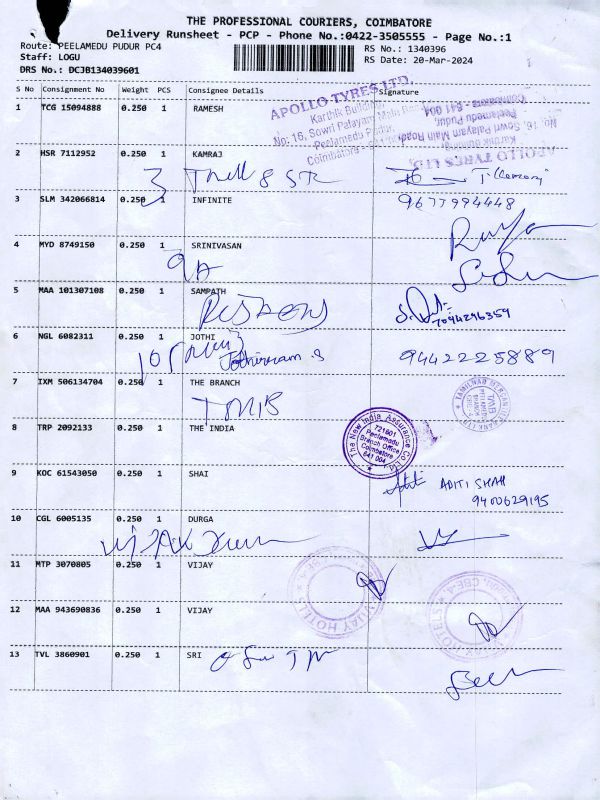 THE PROFESSIONAL COURIERS, COIMBATORE
Delivery Runsheet - PCP - Phone No.:0422-3505555 - Page No.:1
Route: PEELAMEDU PUDUR PC4
RS No.: 1340396
Staff: LOGU
RS Date: 20-Mar-2024
DRS No.: DCJB134039601
S No Consignment No Weight PCS Consignee Details Signature
1 TCG 15094888 0.250 1 RAMESH
APOLLO TYRES LTD.
Karthik Building
No: 16, Sowri Palayam Main Road
Peelamedu Pudur,
Coimbatore - 641 004
APOLLO TYRES LTD.
Karthik Building
No. 16, Sowri Palayam Main Road,
Peelamedu Pudur,
Coimbatore - 641 004
2 HSR 7112952 0.250 1 KAMRAJ
3 SLM 342066814 0.250 1 INFINITE 9677994448
4 MYD 8749150 0.250 1 SRINIVASAN
5 MAA 101307108 0.250 1 SAMPATH
7094296359
6 NGL 6082311 0.250 1 JOTHI
Jothiraam.S 9442225889
7 IXM 506134704 0.250 1 THE BRANCH
TMB
TAMILNAD MERCANTILE BANK LTD
TMB
PEELAMEDU
BRANCH
8 TRP 2092133 0.250 1 THE INDIA
The New India Assurance Co. Ltd.
721601
Peelamedu
Branch Office
Coimbatore
641 004
9 KOC 61543050 0.250 1 SHAI
ADITI SHAH
9400629195
10 CGL 6005135 0.250 1 DURGA
11 MTP 3070805 0.250 1 VIJAY
VIJAY HOTEL
12 MAA 943690836 0.250 1 VIJAY
13 TVL 3860901 0.250 1 SRI